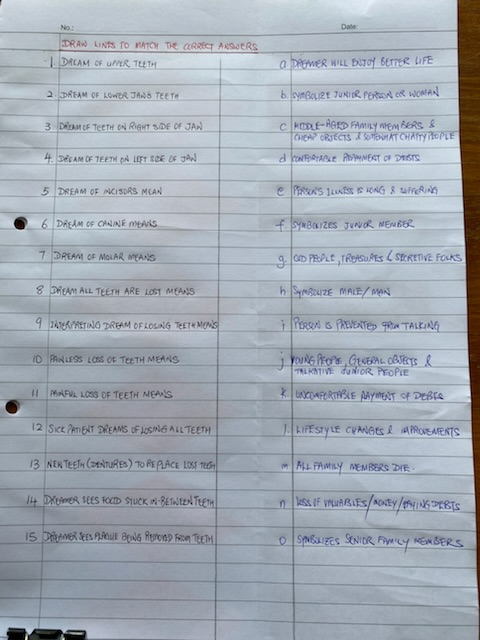 No.: Date:
DRAW LINES TO MATCH THE CORRECT ANSWERS
1. DREAM OF UPPER TEETH a DREAMER WILL ENJOY BETTER LIFE
2 DREAM OF LOWER JAWS TEETH b SYMBOLIZE JUNIOR PERSON OR WOMAN
3 DREAM OF TEETH ON RIGHT SIDE OF JAW c MIDDLE-AGED FAMILY MEMBERS &
CHEAP OBJECTS & SOMEWHAT CHATTY PEOPLE
4. DREAM OF TEETH ON LEFT SIDE OF JAW d COMFORTABLE REPAYMENT OF DEBTS
5 DREAM OF INCISORS MEAN e PERSON'S ILLNESS IS LONG & SUFFERING
6 DREAM OF CANINE MEANS f. SYMBOLIZES JUNIOR MEMBER
7 DREAM OF MOLAR MEANS g. OLD PEOPLE, TREASURES & SECRETIVE FOLKS
8 DREAM ALL TEETH ARE LOST MEANS h SYMBOLIZE MALE/MAN
9 INTERPRETING DREAM OF LOSING TEETH MEANS i PERSON IS PREVENTED FROM TALKING
10 PAINLESS LOSS OF TEETH MEANS j YOUNG PEOPLE, GENERAL OBJECTS &
TALKATIVE JUNIOR PEOPLE
11 PAINFUL LOSS OF TEETH MEANS k. UNCOMFORTABLE PAYMENT OF DEBTS
12 SICK PATIENT DREAMS OF LOSING ALL TEETH l. LIFESTYLE CHANGES & IMPROVEMENTS
13 NEW TEETH (DENTURES) TO REPLACE LOST TEETH m ALL FAMILY MEMBERS DIE.
14 DREAMER SEES FOOD STUCK IN-BETWEEN TEETH n LOSS OF VALUABLES/MONEY/PAYING DEBTS
15 DREAMER SEES PLAQUE BEING REMOVED FROM TEETH o SYMBOLIZES SENIOR FAMILY MEMBERS